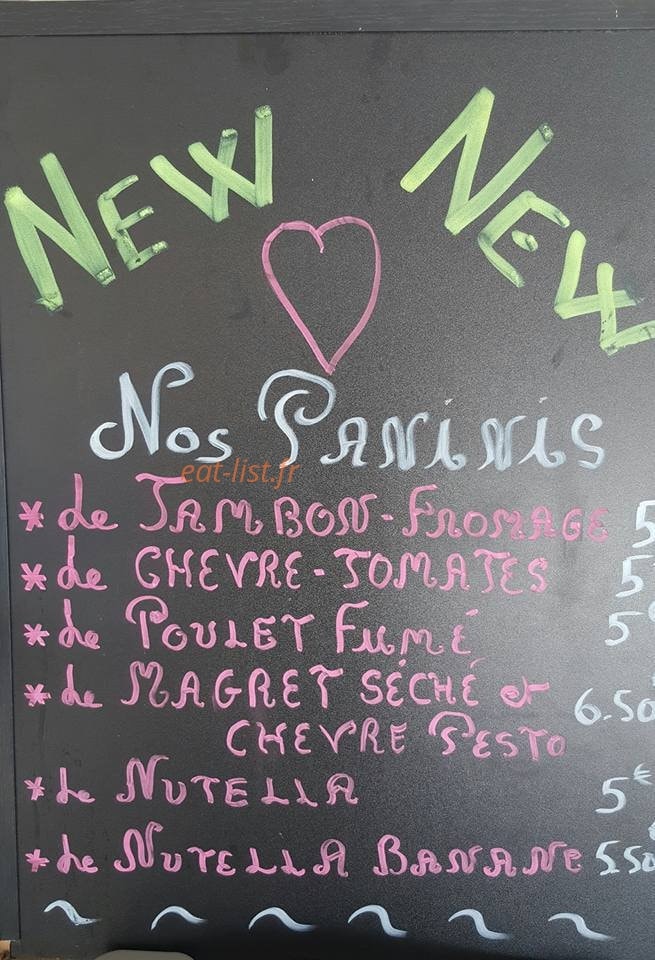 NEW NEW
Nos PANiNiS
eat-list.fr
* Le JAMBON-FROMAGE 5
* Le CHEVRE-TOMATES 5
* Le POULET FUMÉ 5€
* Le MAGRET SÉCHÉ et 6.50
CHEVRE PESTO
* Le NUTELLA 5€
* Le NUTELLA BANANE 5.50